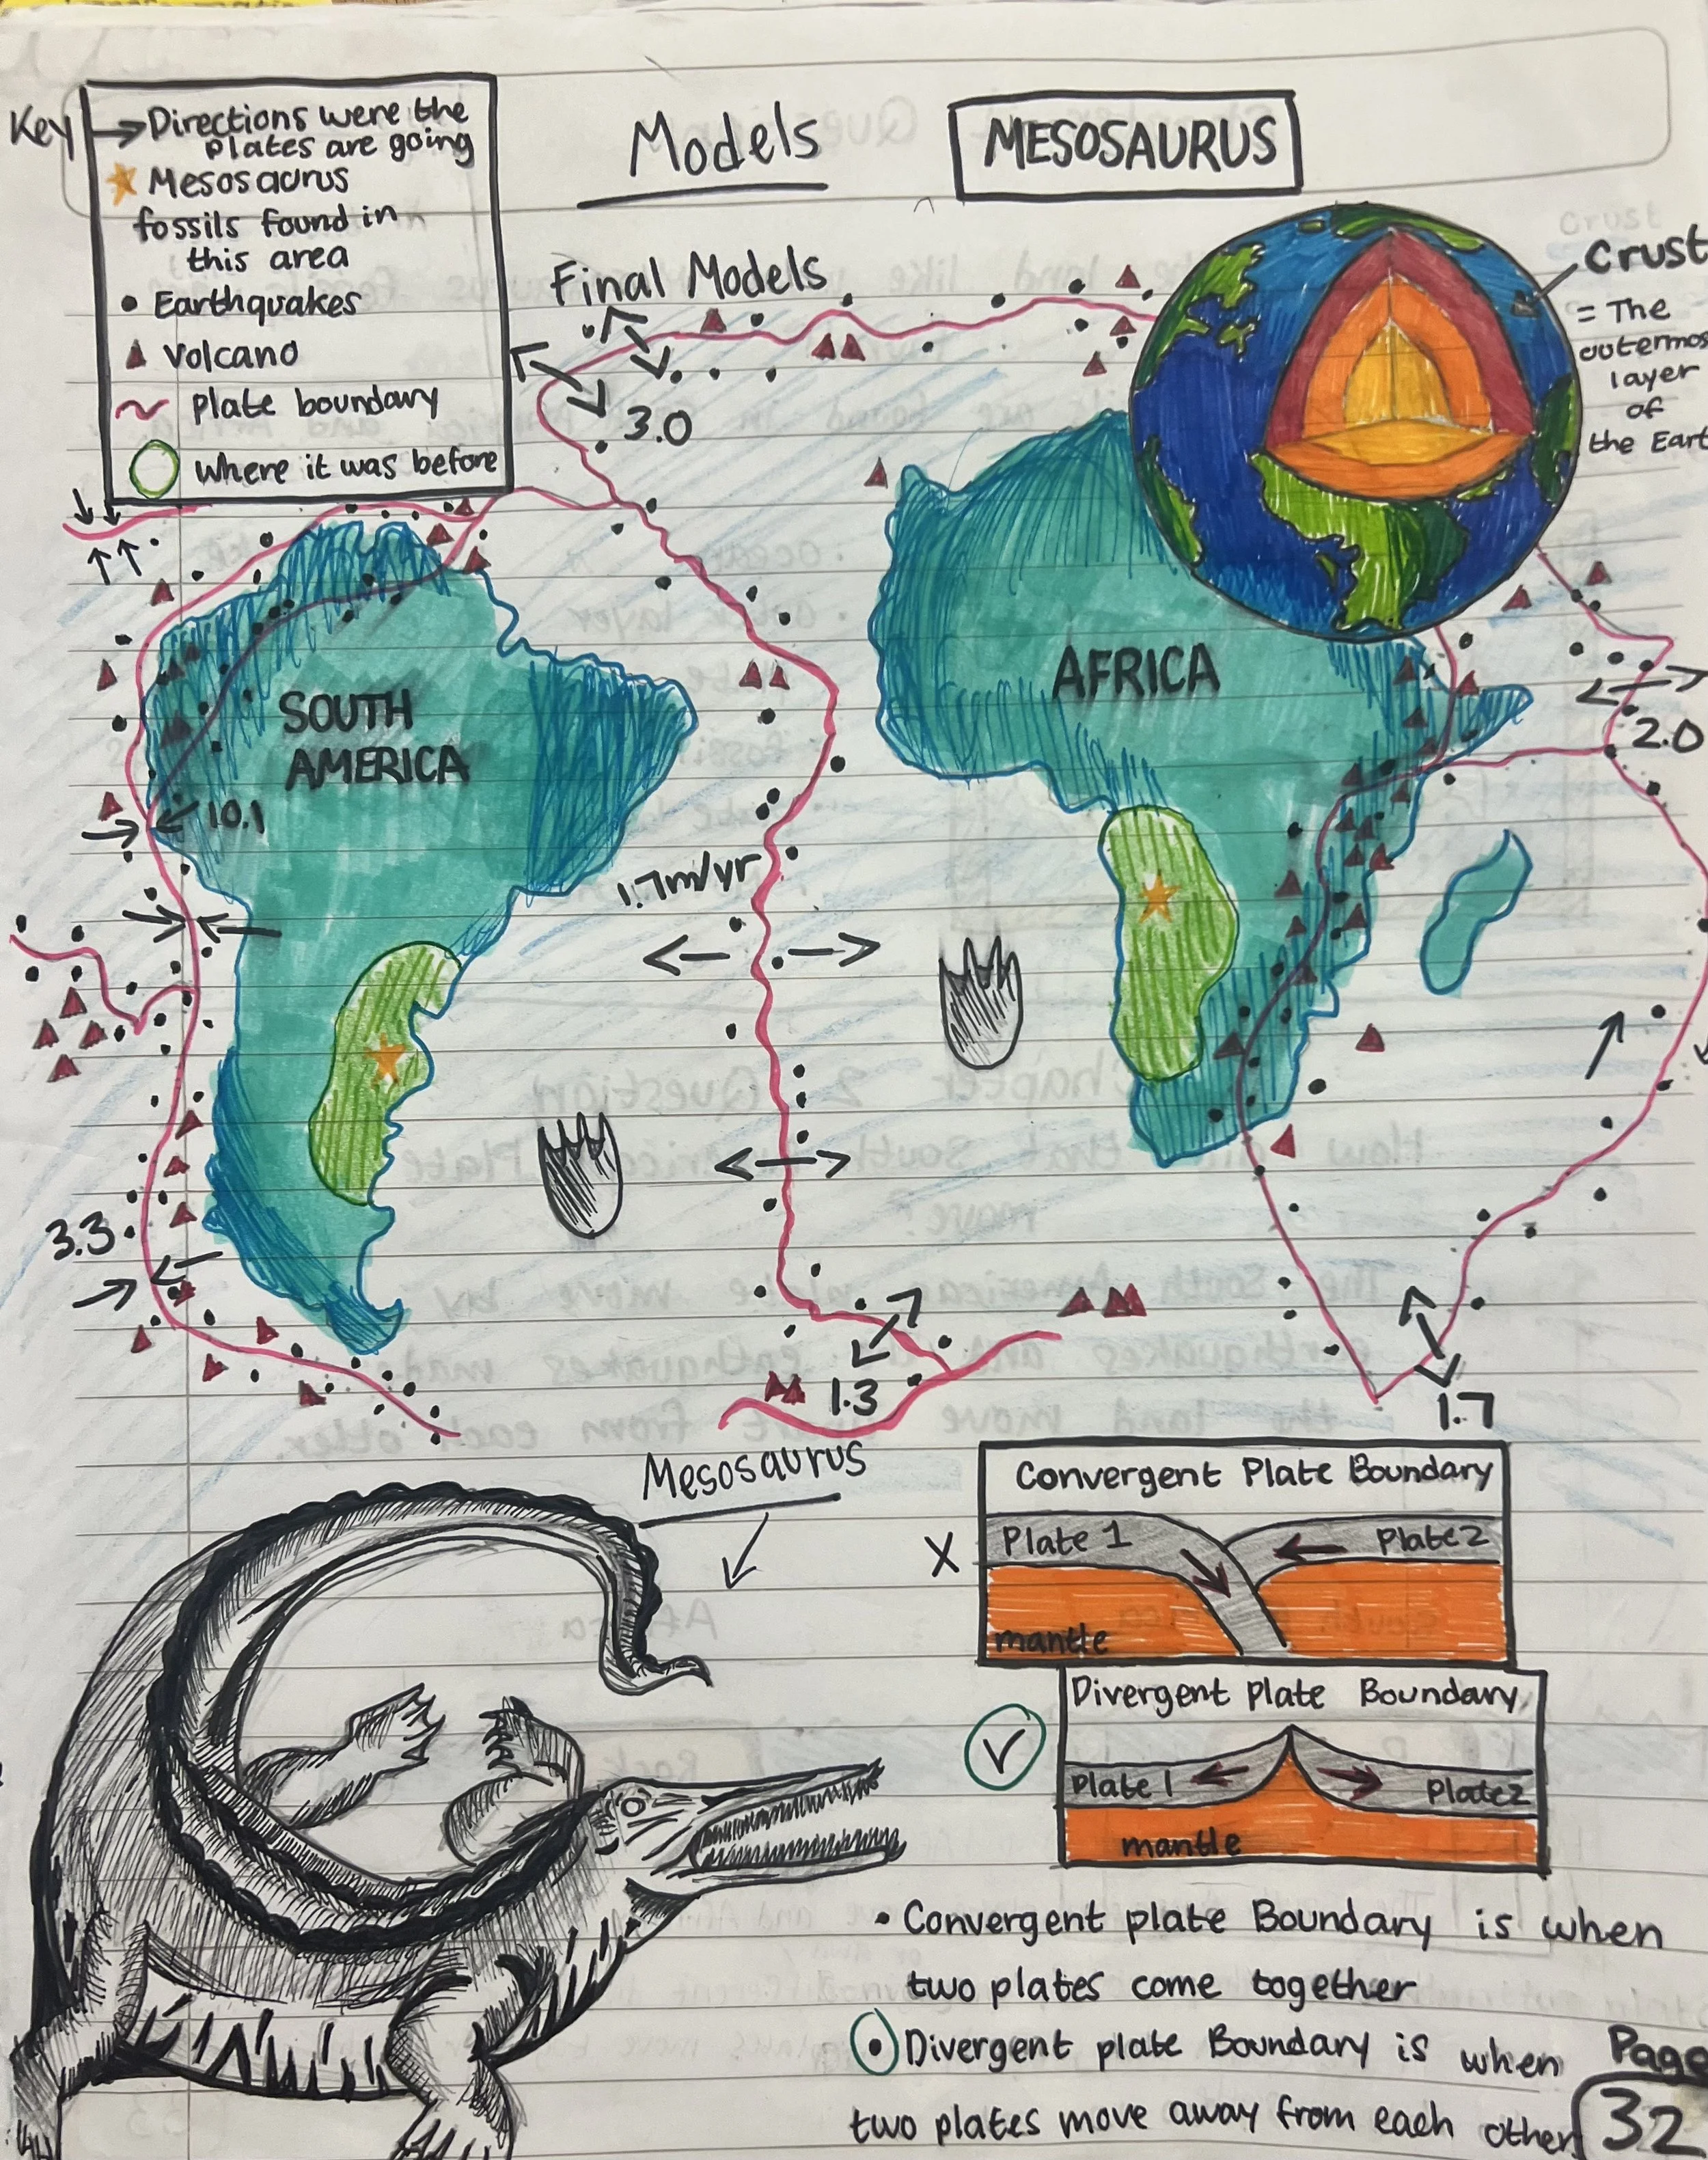 Key
Directions were the
plates are going
Mesosaurus
fossils found in
this area
Earthquakes
Volcano
plate boundary
where it was before
Models
MESOSAURUS
Final Models
Crust
= The
outermos
layer
of
the Eart
3.0
SOUTH
AMERICA
AFRICA
2.0
10.1
1.7m/yr
3.3
1.3
1.7
Mesosaurus
Convergent Plate Boundary
Plate 1
Plate 2
X
mantle
Divergent Plate Boundary
Plate 1
Plate 2
mantle
• Convergent plate Boundary is when
two plates come together
• Divergent plate Boundary is when
two plates move away from each other
Page
32